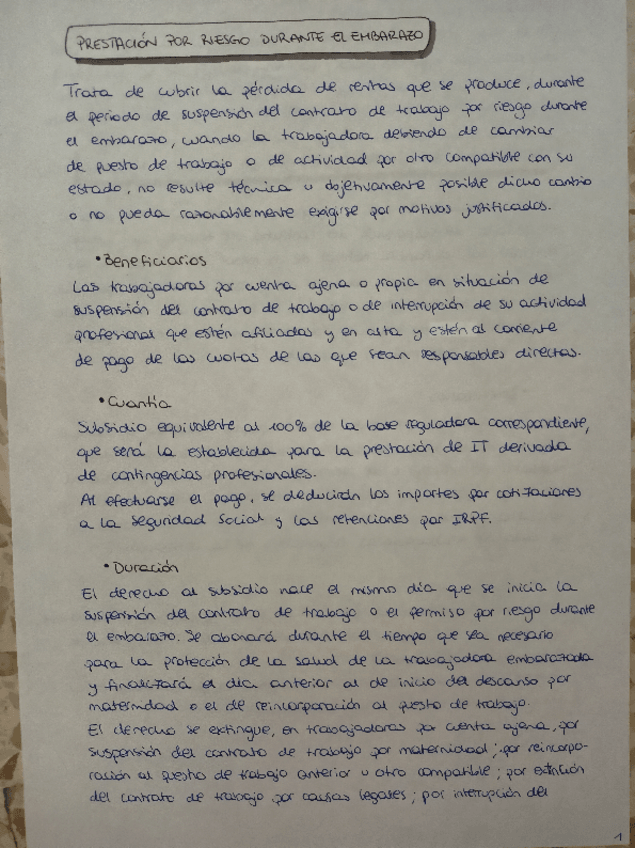 PRESTACIÓN POR RIESGO DURANTE EL EMBARAZO
Trata de cubrir la pérdida de rentas que se produce, durante
el periodo de suspensión del contrato de trabajo por riesgo durante
el embarazo, cuando la trabajadora debiendo de cambiar
de puesto de trabajo o de actividad por otro compatible con su
estado, no resulte técnica u objetivamente posible dicho cambio
o no pueda razonablemente exigirse por motivos justificados.
• Beneficiarios
Las trabajadoras por cuenta ajena o propia en situación de
suspensión del contrato de trabajo o de interrupción de su actividad
profesional que estén afiliadas y en alta y estén al corriente
de pago de las cuotas de las que sean responsables directas.
• Cuantía
Subsidio equivalente al 100% de la base reguladora correspondiente,
que será la establecida para la prestación de IT derivada
de contingencias profesionales.
Al efectuarse el pago, se deducirán los importes por cotizaciones
a la Seguridad Social y las retenciones por IRPF.
• Duración
El derecho al subsidio nace el mismo día que se inicia la
suspensión del contrato de trabajo o el permiso por riesgo durante
el embarazo. Se abonará durante el tiempo que sea necesario
para la protección de la salud de la trabajadora embarazada
y finalizará el día anterior al de inicio del descanso por
maternidad o el de reincorporación al puesto de trabajo.
El derecho se extingue, en trabajadoras por cuenta ajena, por
suspensión del contrato de trabajo por maternidad; por reincorpo-
ración al puesto de trabajo anterior u otro compatible; por extinción
del contrato de trabajo por causas legales; por interrupción del
1